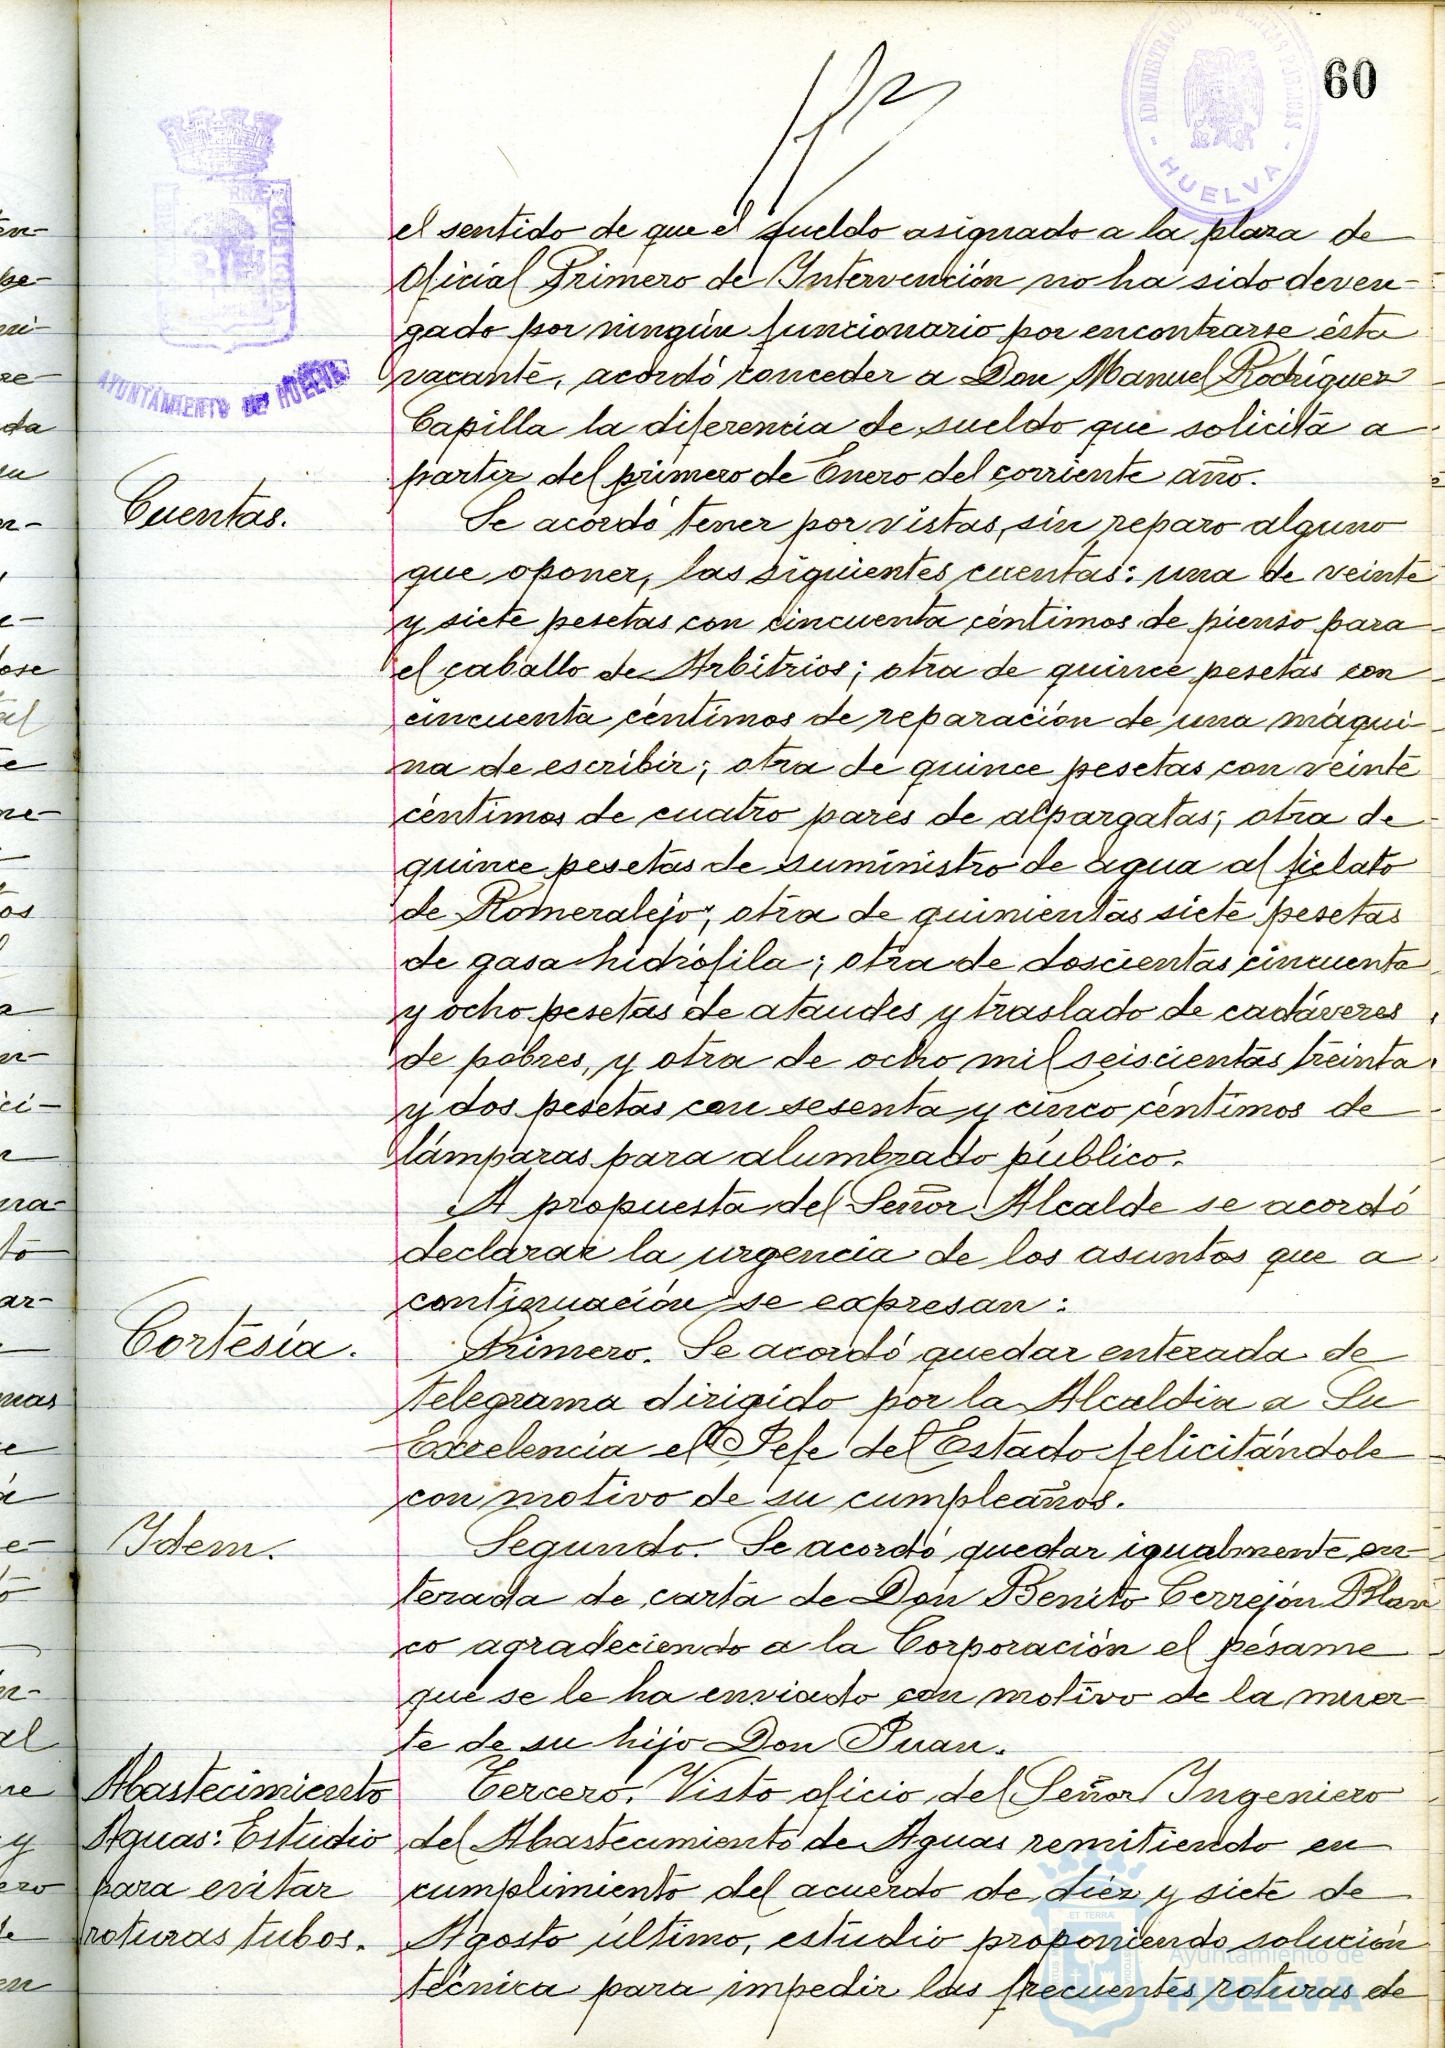 60
ADMINISTRACION DE RENTAS PUBLICAS
- HUELVA -
AYUNTAMIENTO DE HUELVA
el sentido de que el sueldo asignado a la plaza de
Oficial Primero de Intervención no ha sido deven-
gado por ningún funcionario por encontrarse ésta
vacante, acordó conceder a Don Manuel Rodríguez
Capilla la diferencia de sueldo que solicita a
partir del primero de Enero del corriente año.
Cuentas.
Se acordó tener por vistas, sin reparo alguno
que oponer, las siguientes cuentas: una de veinte
y siete pesetas con cincuenta céntimos de pienso para
el caballo de Arbitrios; otra de quince pesetas con
cincuenta céntimos de reparación de una máqui-
na de escribir; otra de quince pesetas con veinte
céntimos de cuatro pares de alpargatas; otra de
quince pesetas de suministro de agua al fielato
de Romeralejo; otra de quinientas siete pesetas
de gasa hidrófila; otra de doscientas cincuenta
y ocho pesetas de ataudes y traslado de cadáveres
de pobres, y otra de ocho mil seiscientas treinta
y dos pesetas con sesenta y cinco céntimos de
lámparas para alumbrado público.
A propuesta del Señor Alcalde se acordó
declarar la urgencia de los asuntos que a
continuación se expresan:
Cortesía.
Primero. Se acordó quedar enterada de
telegrama dirigido por la Alcaldia a Su
Excelencia el Jefe del Estado felicitándole
con motivo de su cumpleaños.
Idem.
Segundo. Se acordó quedar igualmente en-
terada de carta de Don Benito Cerrejón Blan
co agradeciendo a la Corporación el pésame
que se le ha enviado con motivo de la muer-
te de su hijo Don Juan.
Abastecimiento
Aguas: Estudio
para evitar
roturas tubos.
Tercero. Visto oficio del Señor Ingeniero
del Abastecimiento de Aguas remitiendo en
cumplimiento del acuerdo de diez y siete de
Agosto último, estudio proponiendo solución
técnica para impedir las frecuentes roturas de
Ayuntamiento de
HUELVA